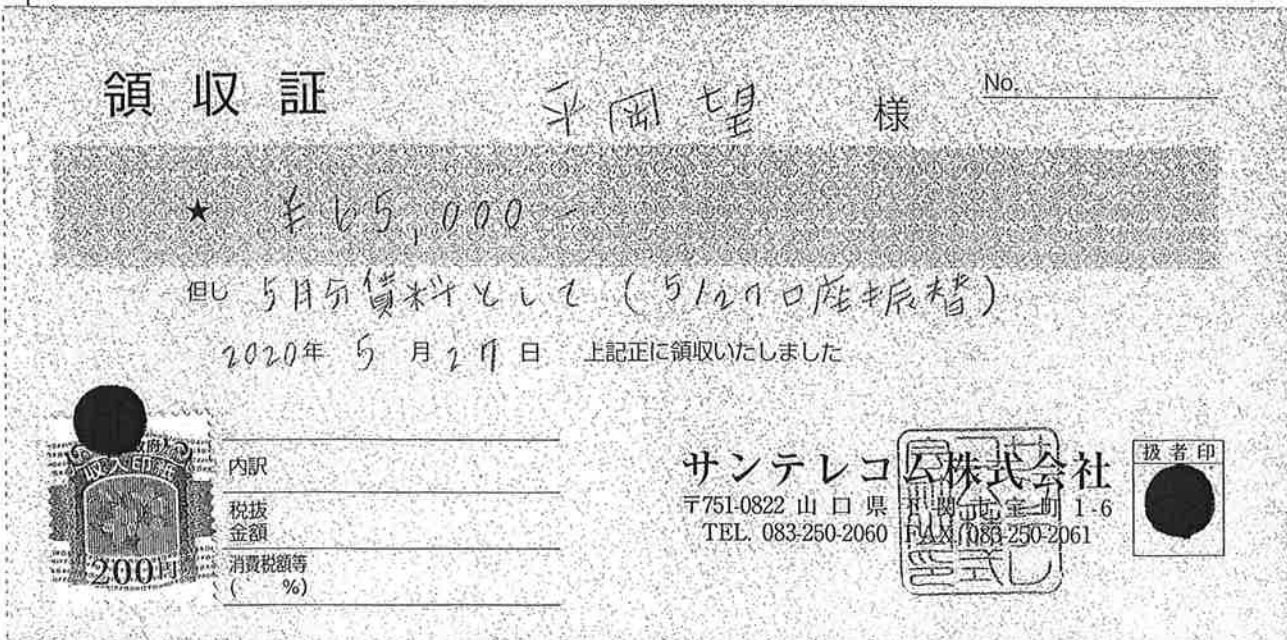 領収証 平岡望 様 No.
★ ¥65,000-
但し 5月分賃料として (5/27口座振替)
2020年 5 月 27 日 上記正に領収いたしました
収入印紙
200円
内訳
税抜金額
消費税額等
( %)
サンテレコム株式会社
〒751-0822 山口県下関市宝町1-6
TEL. 083-250-2060 FAX. 083-250-2061
扱者印